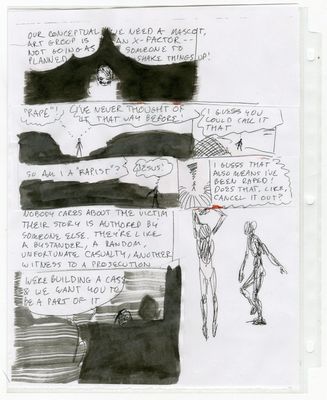 OUR CONCEPTUAL
ART GROUP IS
NOT GOING AS
PLANNED
WE NEED A MASCOT,
AN X-FACTOR --
SOMEONE TO
SHAKE THINGS UP!
"RAPE"! I'VE NEVER THOUGHT OF
IT THAT WAY BEFORE!
I GUESS YOU
COULD CALL IT
THAT
SO AM I A "RAPIST"?
JESUS!
I GUESS THAT
ALSO MEANS I'VE
BEEN RAPED!
DOES THAT, LIKE,
CANCEL IT OUT?
NOBODY CARES ABOUT THE VICTIM
THEIR STORY IS AUTHORED BY
SOMEONE ELSE. THEY'RE LIKE
A BYSTANDER, A RANDOM,
UNFORTUNATE CASUALTY, ANOTHER
WITNESS TO A PROSECUTION
WE'RE BUILDING A CASE
& WE WANT YOU TO
BE A PART OF IT